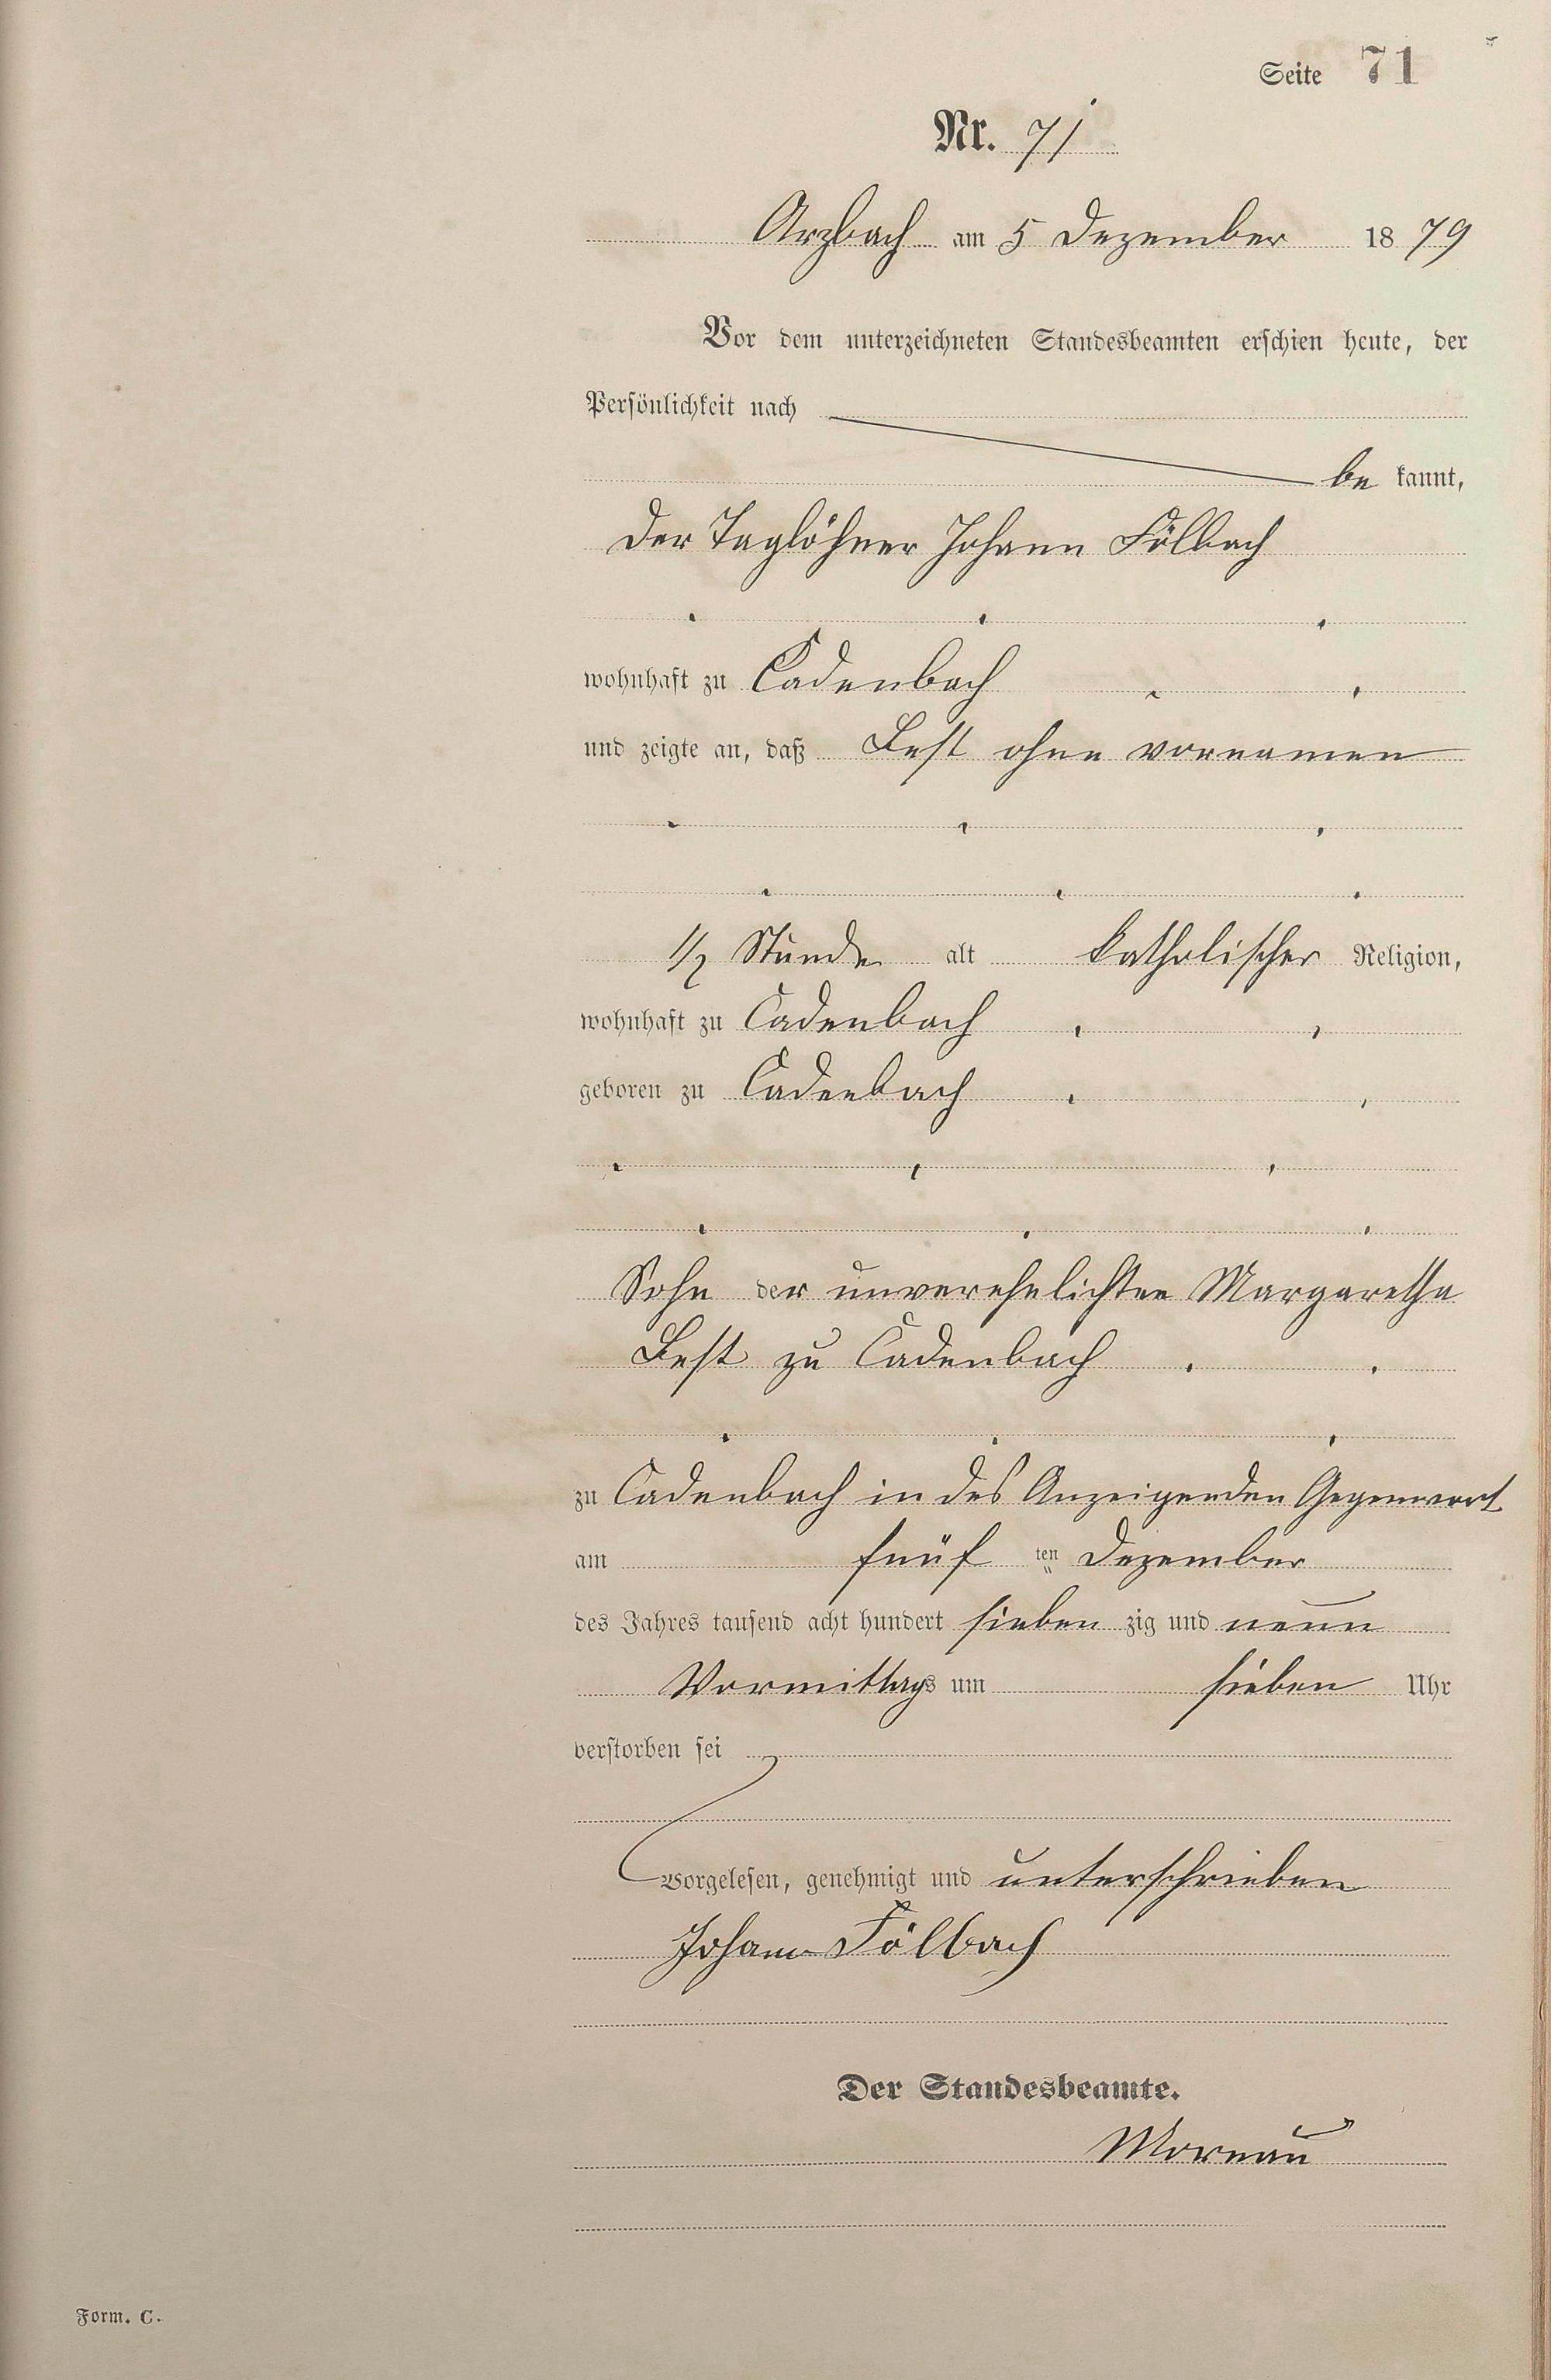 Seite 71
Nr. 71
Arzbach am 5 Dezember 1879
Vor dem unterzeichneten Standesbeamten erschien heute, der
Persönlichkeit nach
be kannt,
der Taglöhner Johann Fölbach
wohnhaft zu Cadenbach
und zeigte an, daß Best ohne vornamen
1/2 Stunde alt katholischer Religion,
wohnhaft zu Cadenbach
geboren zu Cadenbach
Sohn der unverehelichten Margaretha
Best zu Cadenbach
zu Cadenbach in des Anzeigenden Gegenwart
am fünf ten Dezember
des Jahres tausend acht hundert sieben zig und neun
Vormittags um sieben Uhr
verstorben sei
Vorgelesen, genehmigt und unterschrieben
Johann Fölbach
Der Standesbeamte.
Mornau
Form. C.